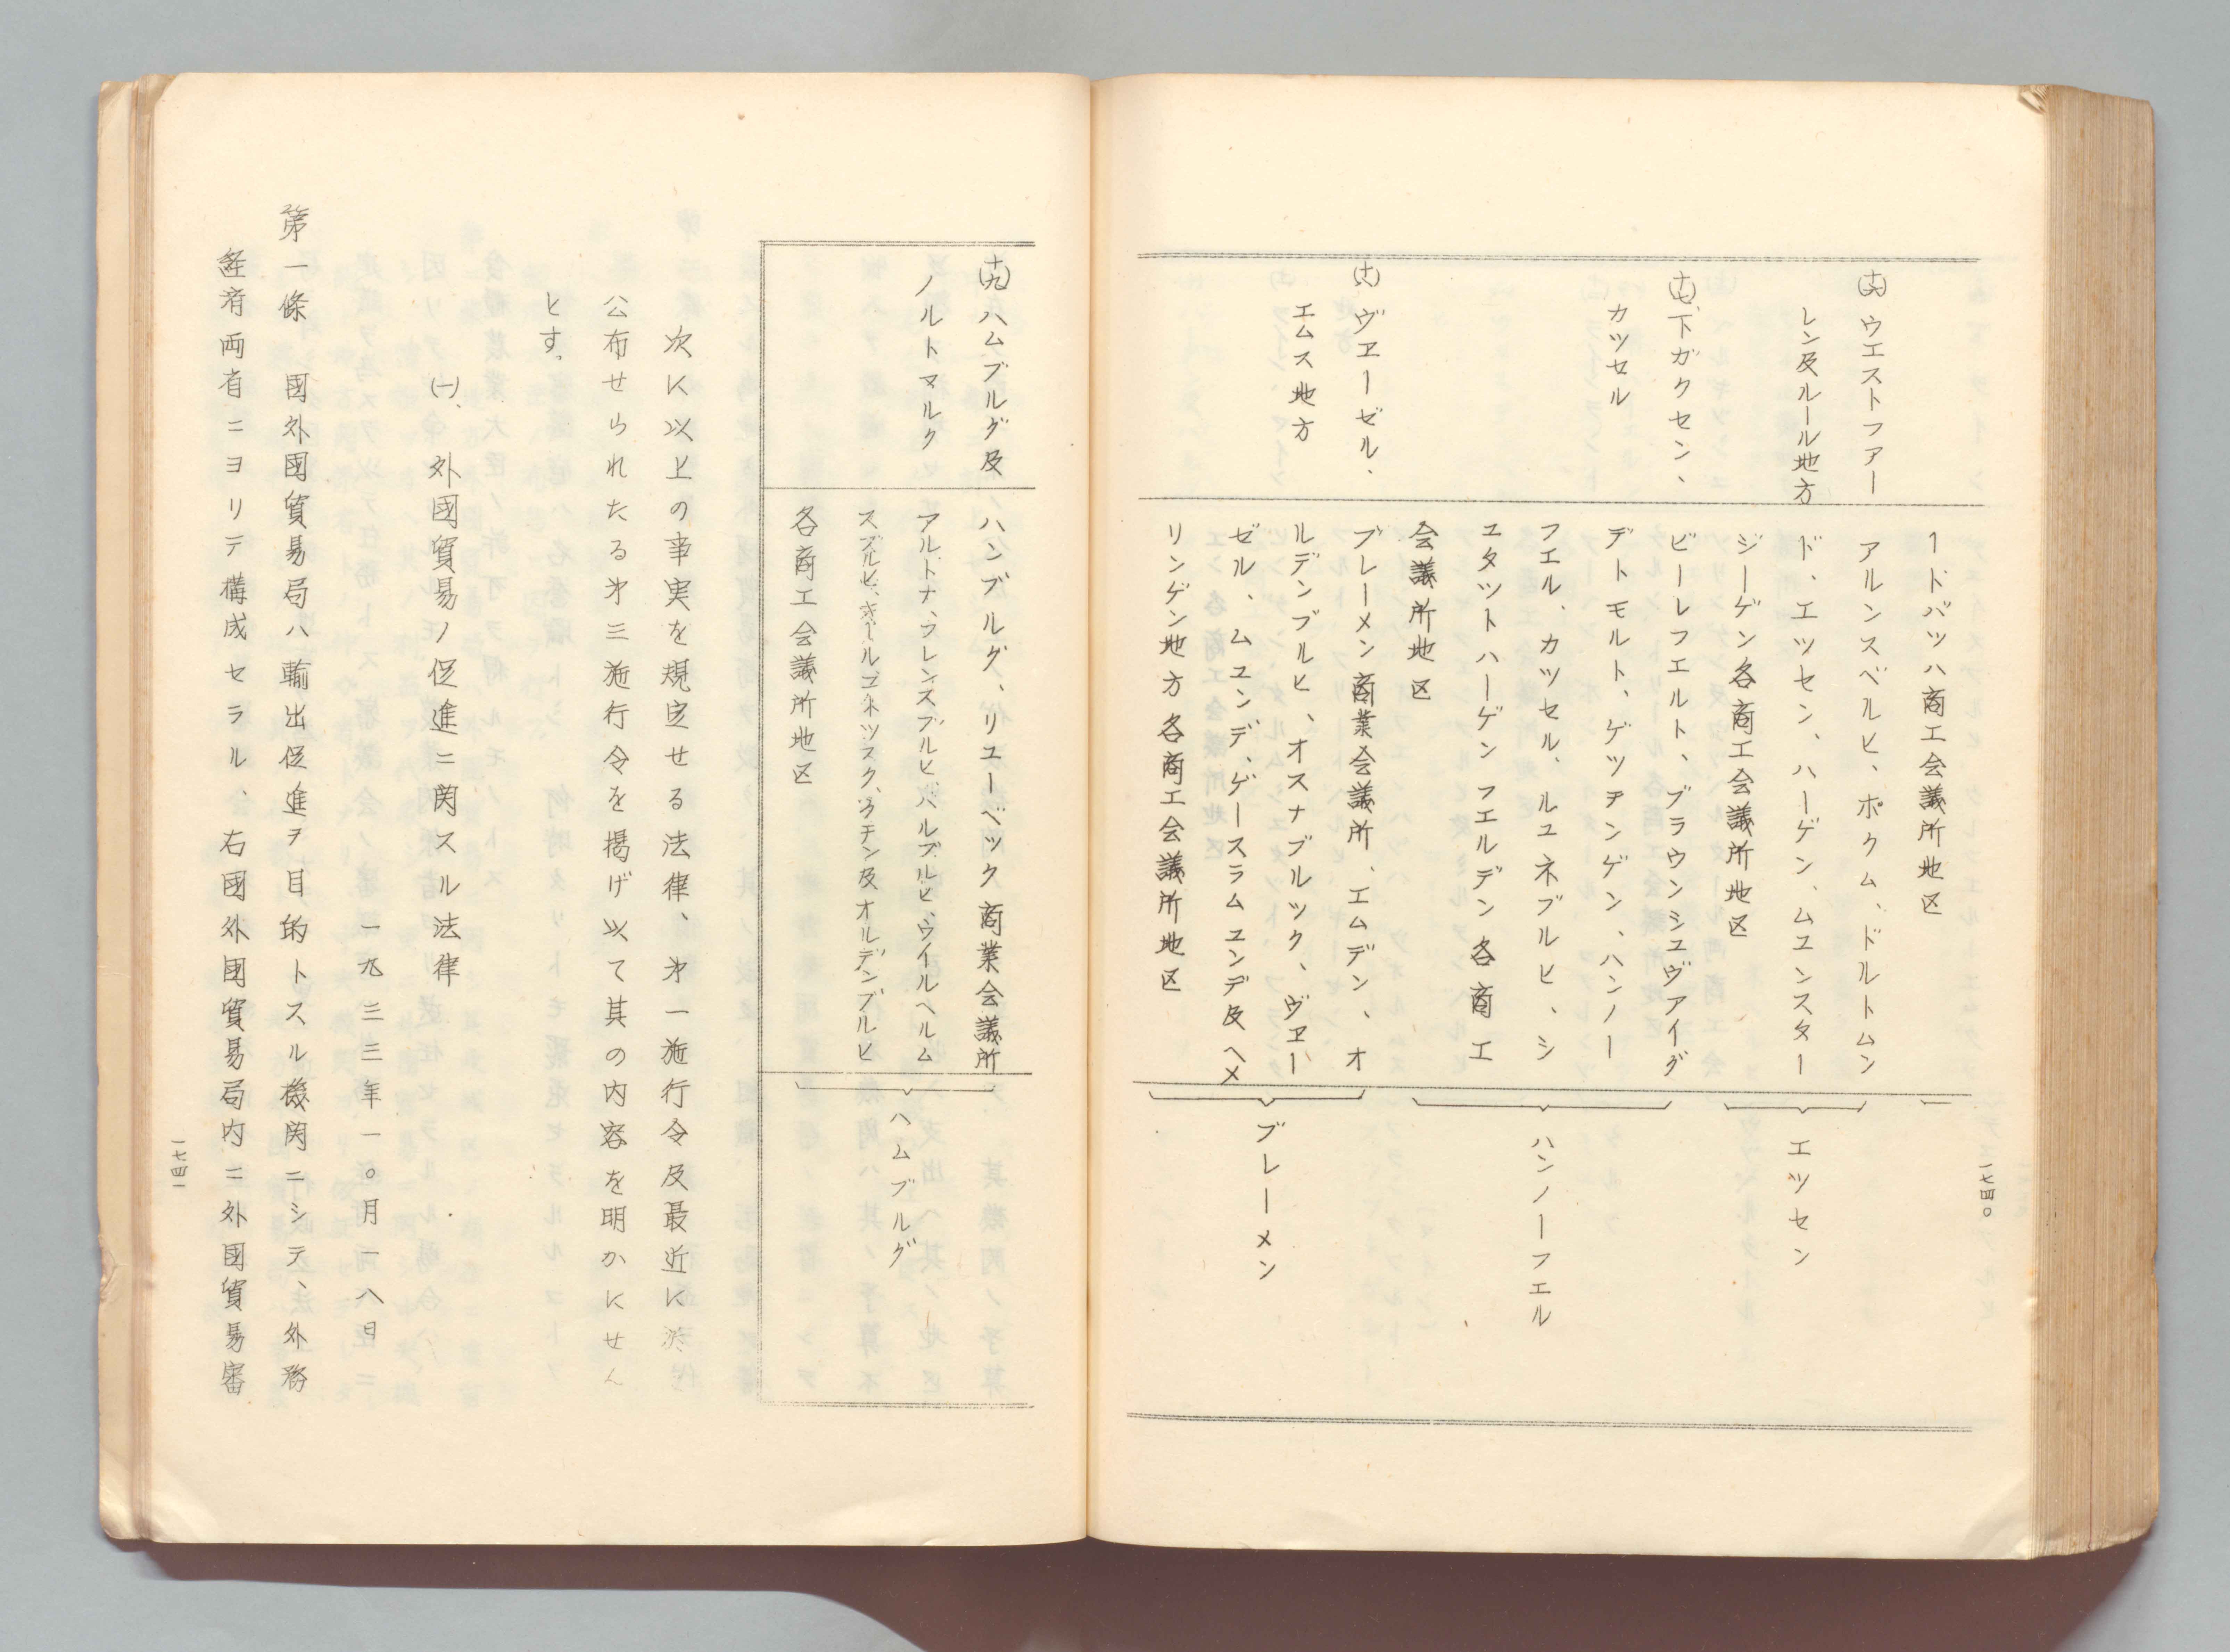 一七四〇
ードバッハ商工会議所地区
(十六)ウエストファー
レン及ルール地方
アルンスベルヒ、ボクム、ドルトムン
ド、エツセン、ハーゲン、ムユンスター
ジーゲン各商工会議所地区
エツセン
(十七)、下ガクセン、
カツセル
ビーレフエルト、ブラウンシユヴアイグ
デトモルト、ゲツチンゲン、ハンノー
フエル、カツセル、ルユネブルヒ、シ
ユタツトハーゲン フエルデン各商工
会議所地区
ハンノーフエル
(十八)ヴエーゼル、
エムス地方
ブレーメン商業会議所、エムデン、オ
ルデンブルヒ、オスナブルツク、ヴエー
ゼル、ムユンデ、ゲースラムユンデ及ヘメ
リンゲン地方各商工会議所地区
ブレーメン
(十九)ハムブルグ及
ノルトマルク
ハンブルグ、リユーベック商業会議所
アルトナ、フレンスブルヒ、ハルブルヒ、ウイルヘルム
スブルヒ、キール、ゴネツスク、ヲチン及オルデンブルヒ
各商工会議所地区
ヘムブルグ
次に以上の事実を規定せる法律、才一施行令及最近に
公布せられたる才三施行令を掲げ以て其の内容を明かにせん
とす。
(一)、外國貿易ノ促進ニ関スル法律
一九三三年一〇月一八日
第一條 國外國貿易局ハ輸出促進ヲ目的トスル機関ニシテ、外務
経済両省ニヨリテ構成セラル、右國外國貿易局内ニ外國貿易審
一七四一